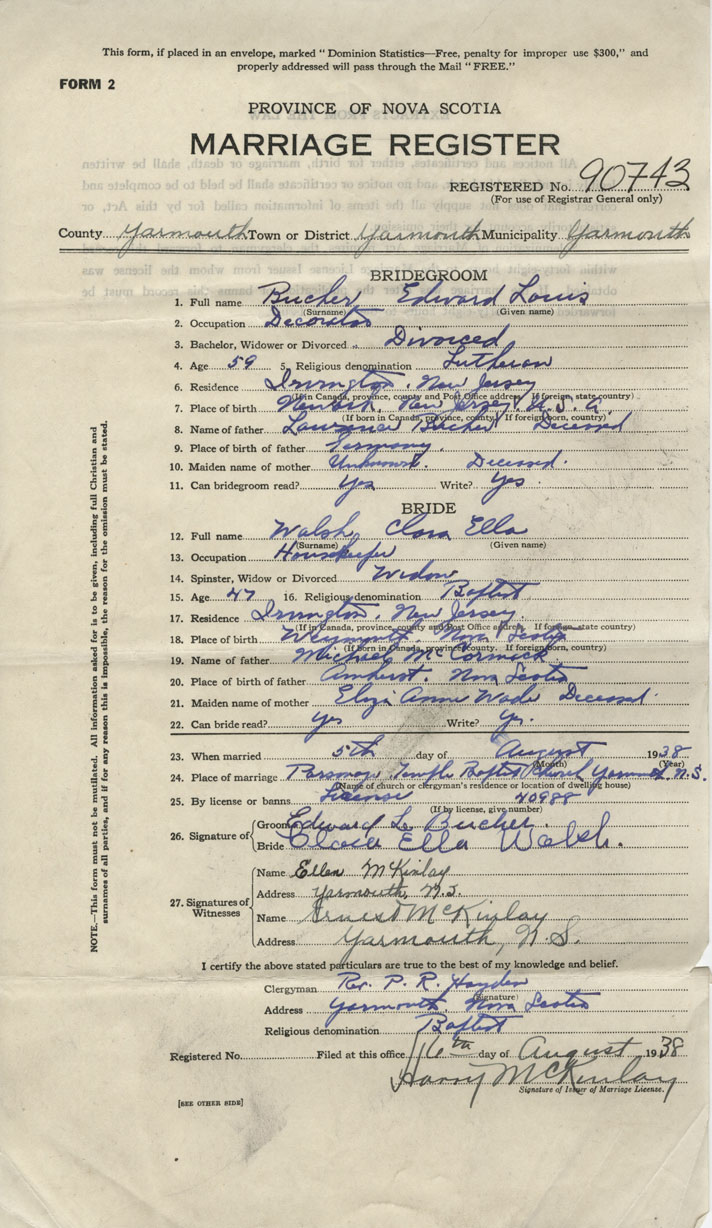 This form, if placed in an envelope, marked "Dominion Statistics—Free, penalty for improper use $300," and
properly addressed will pass through the Mail "FREE."
FORM 2
PROVINCE OF NOVA SCOTIA
MARRIAGE REGISTER
REGISTERED No. 90743
(For use of Registrar General only)
County Yarmouth Town or District Yarmouth Municipality Yarmouth
BRIDEGROOM
1. Full name Bucher Edward Louis
(Surname) (Given name)
2. Occupation Decorator
3. Bachelor, Widower or Divorced Divorced
4. Age 59 5. Religious denomination Lutheran
6. Residence Irvington, New Jersey
(If in Canada, province, county and Post Office address. If foreign, state country)
7. Place of birth Newark, New Jersey. U. S. A.
(If born in Canada, province, county. If foreign born, country)
8. Name of father Lawrence Bucher Deceased
9. Place of birth of father Germany.
10. Maiden name of mother Unknown. Deceased.
11. Can bridegroom read? Yes Write? Yes.
BRIDE
12. Full name Walsh, Clara Ella
(Surname) (Given name)
13. Occupation Housekeeper
14. Spinster, Widow or Divorced Widow
15. Age 47 16. Religious denomination Baptist
17. Residence Irvington, New Jersey.
(If in Canada, province, county and Post Office address. If foreign, state country)
18. Place of birth Weymouth, Nova Scotia
(If born in Canada, province, county. If foreign born, country)
19. Name of father Michael McCormick
20. Place of birth of father Amherst. Nova Scotia
21. Maiden name of mother Eliza Anne Wade Deceased.
22. Can bride read? Yes Write? Yes.
23. When married 5th day of August 1938
(Month) (Year)
24. Place of marriage Parsonage, Temple Baptist Church, Yarmouth, N.S.
(Name of church or clergyman's residence or location of dwelling house)
25. By license or banns License 40988
(If by license, give number)
26. Signature of
Groom Edward L. Bucher.
Bride Clara Ella Walsh.
27. Signatures of Witnesses
Name Ellen McKinlay
Address Yarmouth, N.S.
Name Ernest McKinlay
Address Yarmouth, N.S.
I certify the above stated particulars are true to the best of my knowledge and belief.
Clergyman Rev. P. R. Hayden
(Signature)
Address Yarmouth Nova Scotia
Religious denomination Baptist
Registered No. Filed at this office 16th day of August 1938
Harry McKinlay
Signature of Issuer of Marriage License.
[SEE OTHER SIDE]
NOTE.—This form must not be mutilated. All information asked for is to be given, including full Christian and
surnames of all parties, and if for any reason this is impossible, the reason for the omission must be stated.